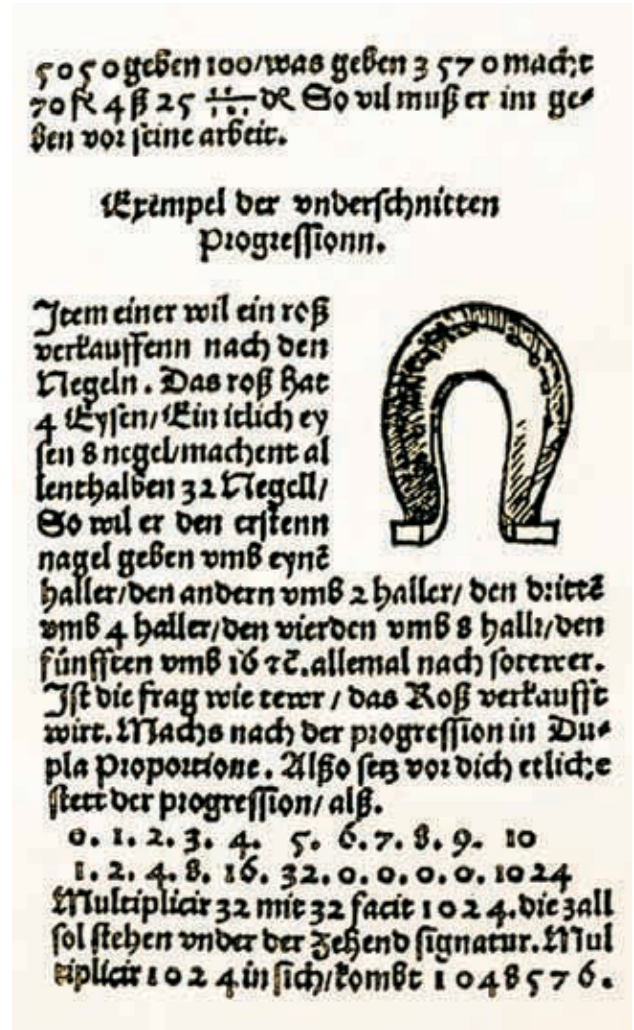 5050 geben 100/was geben 3 570 macht
70 fl 4 ß 25 dẽ So vil muß er im ge⸗
ben vor seine arbeit.
Exẽmpel der vnderschnitten
Progressionn.
Item einer wil ein roß
verkauffenn nach den
Negeln. Das roß hat
4 Eysen/Ein itlich ey
sen 8 negel/machent al
lenthalben 32 Negell/
So wil er den erstenn
nagel geben vmb eynẽ
haller/den andern vmb 2 haller/ den drittẽ
vmb 4 haller/den vierden vmb 8 hallr/den
fünfften vmb 16 ꝛc̃.allemal nach so tewer.
Ist die frag wie tewr/ das Roß verkaufft
wirt. Machs nach der progression in Du⸗
pla Proportione. Alßo setz vor dich etliche
stett der progression/ alß.
0. 1. 2. 3. 4. 5. 6. 7. 8. 9. 10
1. 2. 4. 8. 16. 32. 0. 0. 0. 0. 1024
Multiplicir 32 mit 32 facit 1024. die zall
sol stehen vnder der Zehend signatur. Mul
tiplicir 1024 in sich/kombt 1048576.